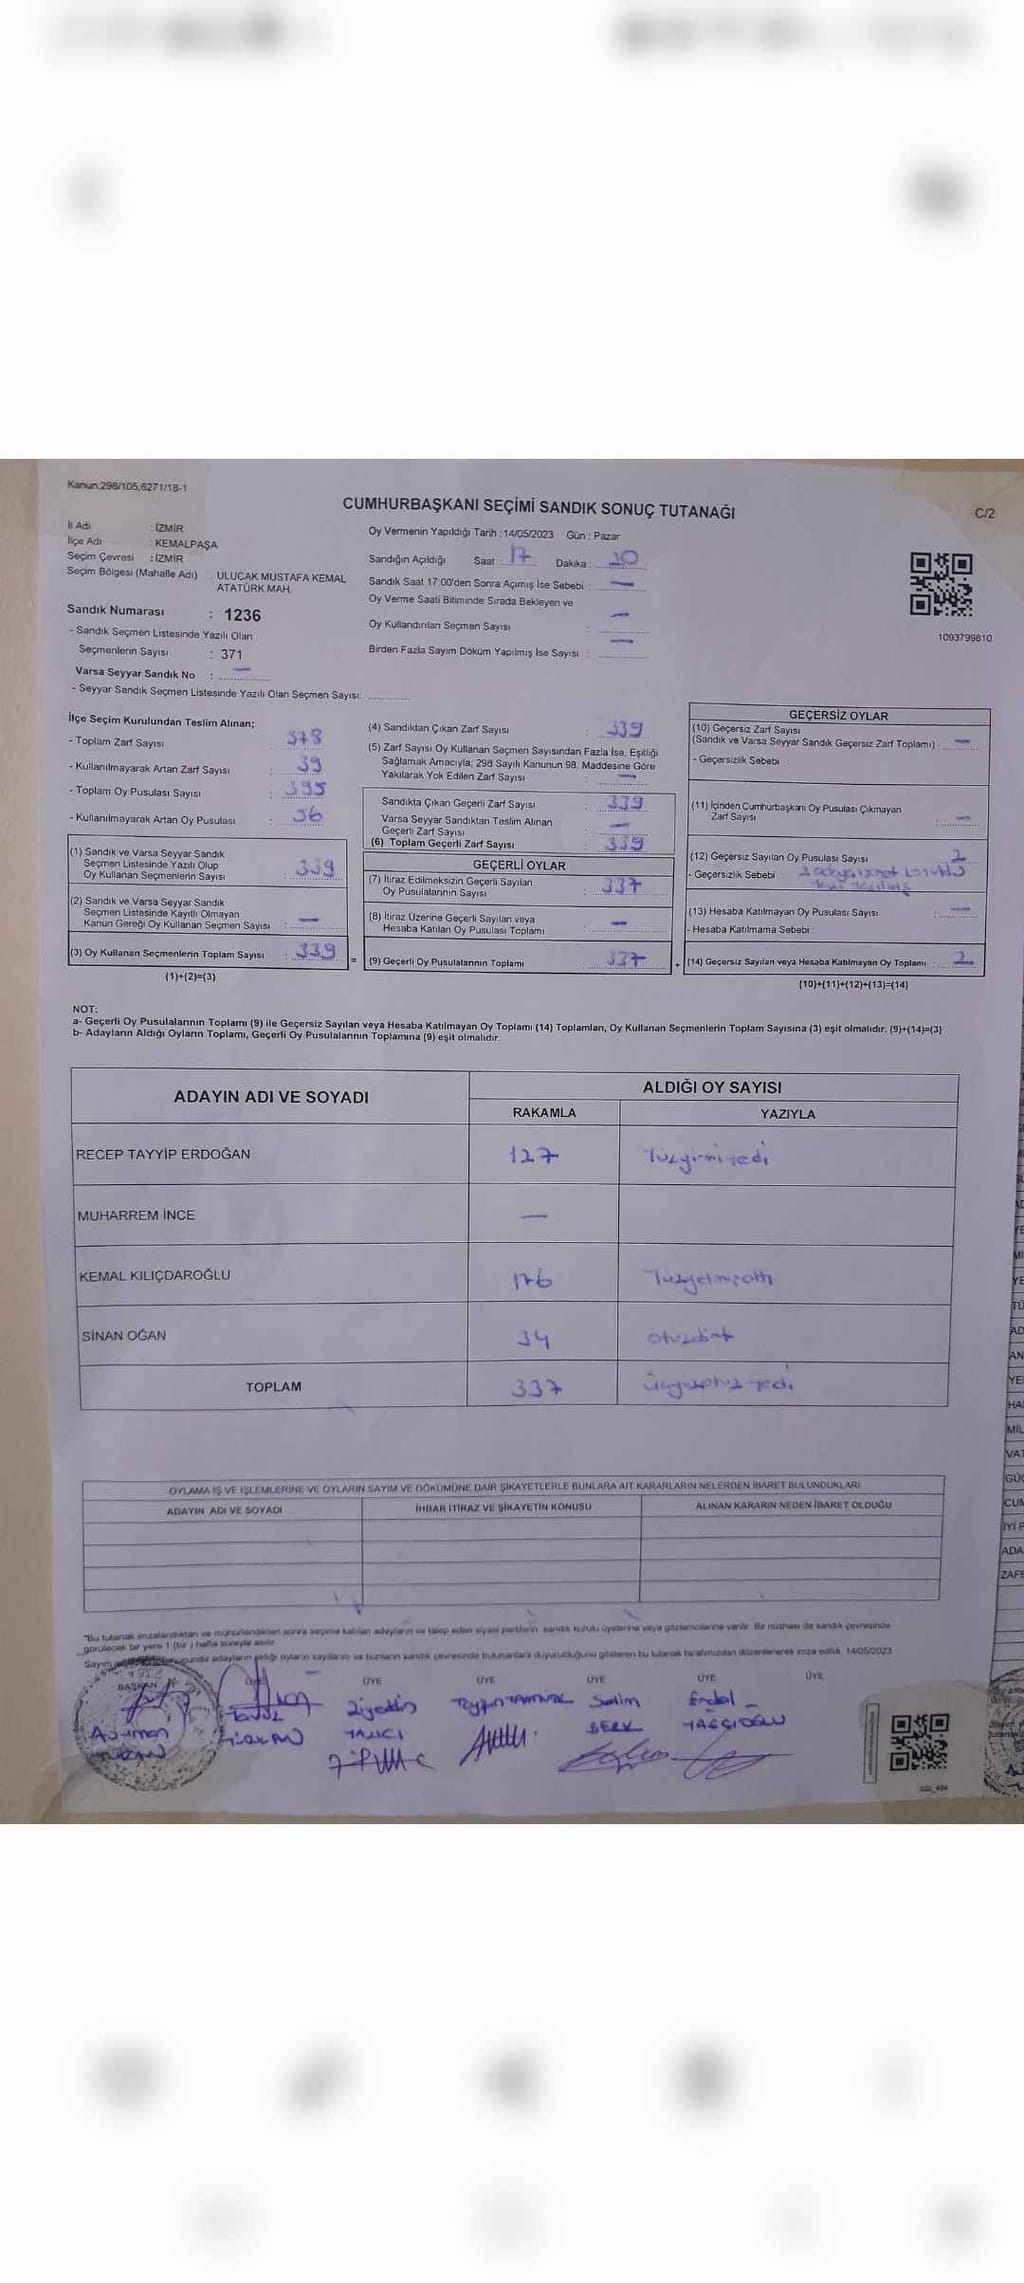 Kanun;298/105,6271/18-1
CUMHURBAŞKANI SEÇİMİ SANDIK SONUÇ TUTANAĞI
C/2
İl Adı : İZMİR
İlçe Adı : KEMALPAŞA
Seçim Çevresi : İZMİR
Seçim Bölgesi (Mahalle Adı) : ULUCAK MUSTAFA KEMAL
ATATÜRK MAH.
Sandık Numarası : 1236
- Sandık Seçmen Listesinde Yazılı Olan
Seçmenlerin Sayısı : 371
Varsa Seyyar Sandık No : —
- Seyyar Sandık Seçmen Listesinde Yazılı Olan Seçmen Sayısı:
Oy Vermenin Yapıldığı Tarih : 14/05/2023 Gün : Pazar
Sandığın Açıldığı Saat : 17 Dakika :
Sandık Saat 17:00'den Sonra Açımış İse Sebebi : —
Oy Verme Saati Bitiminde Sırada Bekleyen ve
Oy Kullandırılan Seçmen Sayısı : —
Birden Fazla Sayım Döküm Yapılmış İse Sayısı : —
1093799610
İlçe Seçim Kurulundan Teslim Alınan;
- Toplam Zarf Sayısı : 378
- Kullanılmayarak Artan Zarf Sayısı : 39
- Toplam Oy Pusulası Sayısı : 395
- Kullanılmayarak Artan Oy Pusulası : 56
(1) Sandık ve Varsa Seyyar Sandık
Seçmen Listesinde Yazılı Olup
Oy Kullanan Seçmenlerin Sayısı : 339
(2) Sandık ve Varsa Seyyar Sandık
Seçmen Listesinde Kayıtlı Olmayan
Kanun Gereği Oy Kullanan Seçmen Sayısı : —
(3) Oy Kullanan Seçmenlerin Toplam Sayısı : 339
(1)+(2)=(3)
(4) Sandıktan Çıkan Zarf Sayısı : 339
(5) Zarf Sayısı Oy Kullanan Seçmen Sayısından Fazla İse, Eşitliği
Sağlamak Amacıyla; 298 Sayılı Kanunun 98. Maddesine Göre
Yakılarak Yok Edilen Zarf Sayısı : —
Sandıkta Çıkan Geçerli Zarf Sayısı : 339
Varsa Seyyar Sandıktan Teslim Alınan
Geçerli Zarf Sayısı : —
(6) Toplam Geçerli Zarf Sayısı : 339
=
GEÇERLİ OYLAR
(7) İtiraz Edilmeksizin Geçerli Sayılan
Oy Pusulalarının Sayısı : 337
(8) İtiraz Üzerine Geçerli Sayılan veya
Hesaba Katılan Oy Pusulası Toplamı : —
(9) Geçerli Oy Pusulalarının Toplamı : 337
+
GEÇERSİZ OYLAR
(10) Geçersiz Zarf Sayısı
(Sandık ve Varsa Seyyar Sandık Geçersiz Zarf Toplamı) : —
- Geçersizlik Sebebi :
(11) İçinden Cumhurbaşkanı Oy Pusulası Çıkmayan
Zarf Sayısı : —
(12) Geçersiz Sayılan Oy Pusulası Sayısı : 2
- Geçersizlik Sebebi
(13) Hesaba Katılmayan Oy Pusulası Sayısı : —
- Hesaba Katılmama Sebebi :
(14) Geçersiz Sayılan veya Hesaba Katılmayan Oy Toplamı : 2
(10)+(11)+(12)+(13)=(14)
NOT:
a- Geçerli Oy Pusulalarının Toplamı (9) ile Geçersiz Sayılan veya Hesaba Katılmayan Oy Toplamı (14) Toplamları, Oy Kullanan Seçmenlerin Toplam Sayısına (3) eşit olmalıdır. (9)+(14)=(3)
b- Adayların Aldığı Oyların Toplamı, Geçerli Oy Pusulalarının Toplamına (9) eşit olmalıdır.
ADAYIN ADI VE SOYADI
ALDIĞI OY SAYISI
RAKAMLA YAZIYLA
RECEP TAYYİP ERDOĞAN 127 Yüzyirmiyedi
MUHARREM İNCE —
KEMAL KILIÇDAROĞLU 176 Yüzyetmişaltı
SİNAN OĞAN 34 otuzdört
TOPLAM 337 üçyüzotuzyedi
OYLAMA İŞ VE İŞLEMLERİNE VE OYLARIN SAYIM VE DÖKÜMÜNE DAİR ŞİKAYETLERLE BUNLARA AİT KARARLARIN NELERDEN İBARET BULUNDUKLARI
ADAYIN ADI VE SOYADI İHBAR İTİRAZ VE ŞİKAYETİN KONUSU ALINAN KARARIN NEDEN İBARET OLDUĞU
"Bu tutanak imzalandıktan ve mühürlendikten sonra seçime katılan adayların ve talep eden siyasi partilerin sandık kurulu üyelerine veya gözlemcilerine verilir. Bir nüshası da sandık çevresinde
görülecek bir yere 1 (bir) hafta süreyle asılır.
adayların aldığı oyların sayılarını ve bunların sandık çevresinde bulunanlara duyurulduğunu gösteren bu tutanak tarafımızdan düzenlenerek imza edildi. 14/05/2023
BAŞKAN ÜYE ÜYE ÜYE ÜYE ÜYE
Ziyeddin Selim Erdal
YAZICI BERK YAĞCIOĞLU